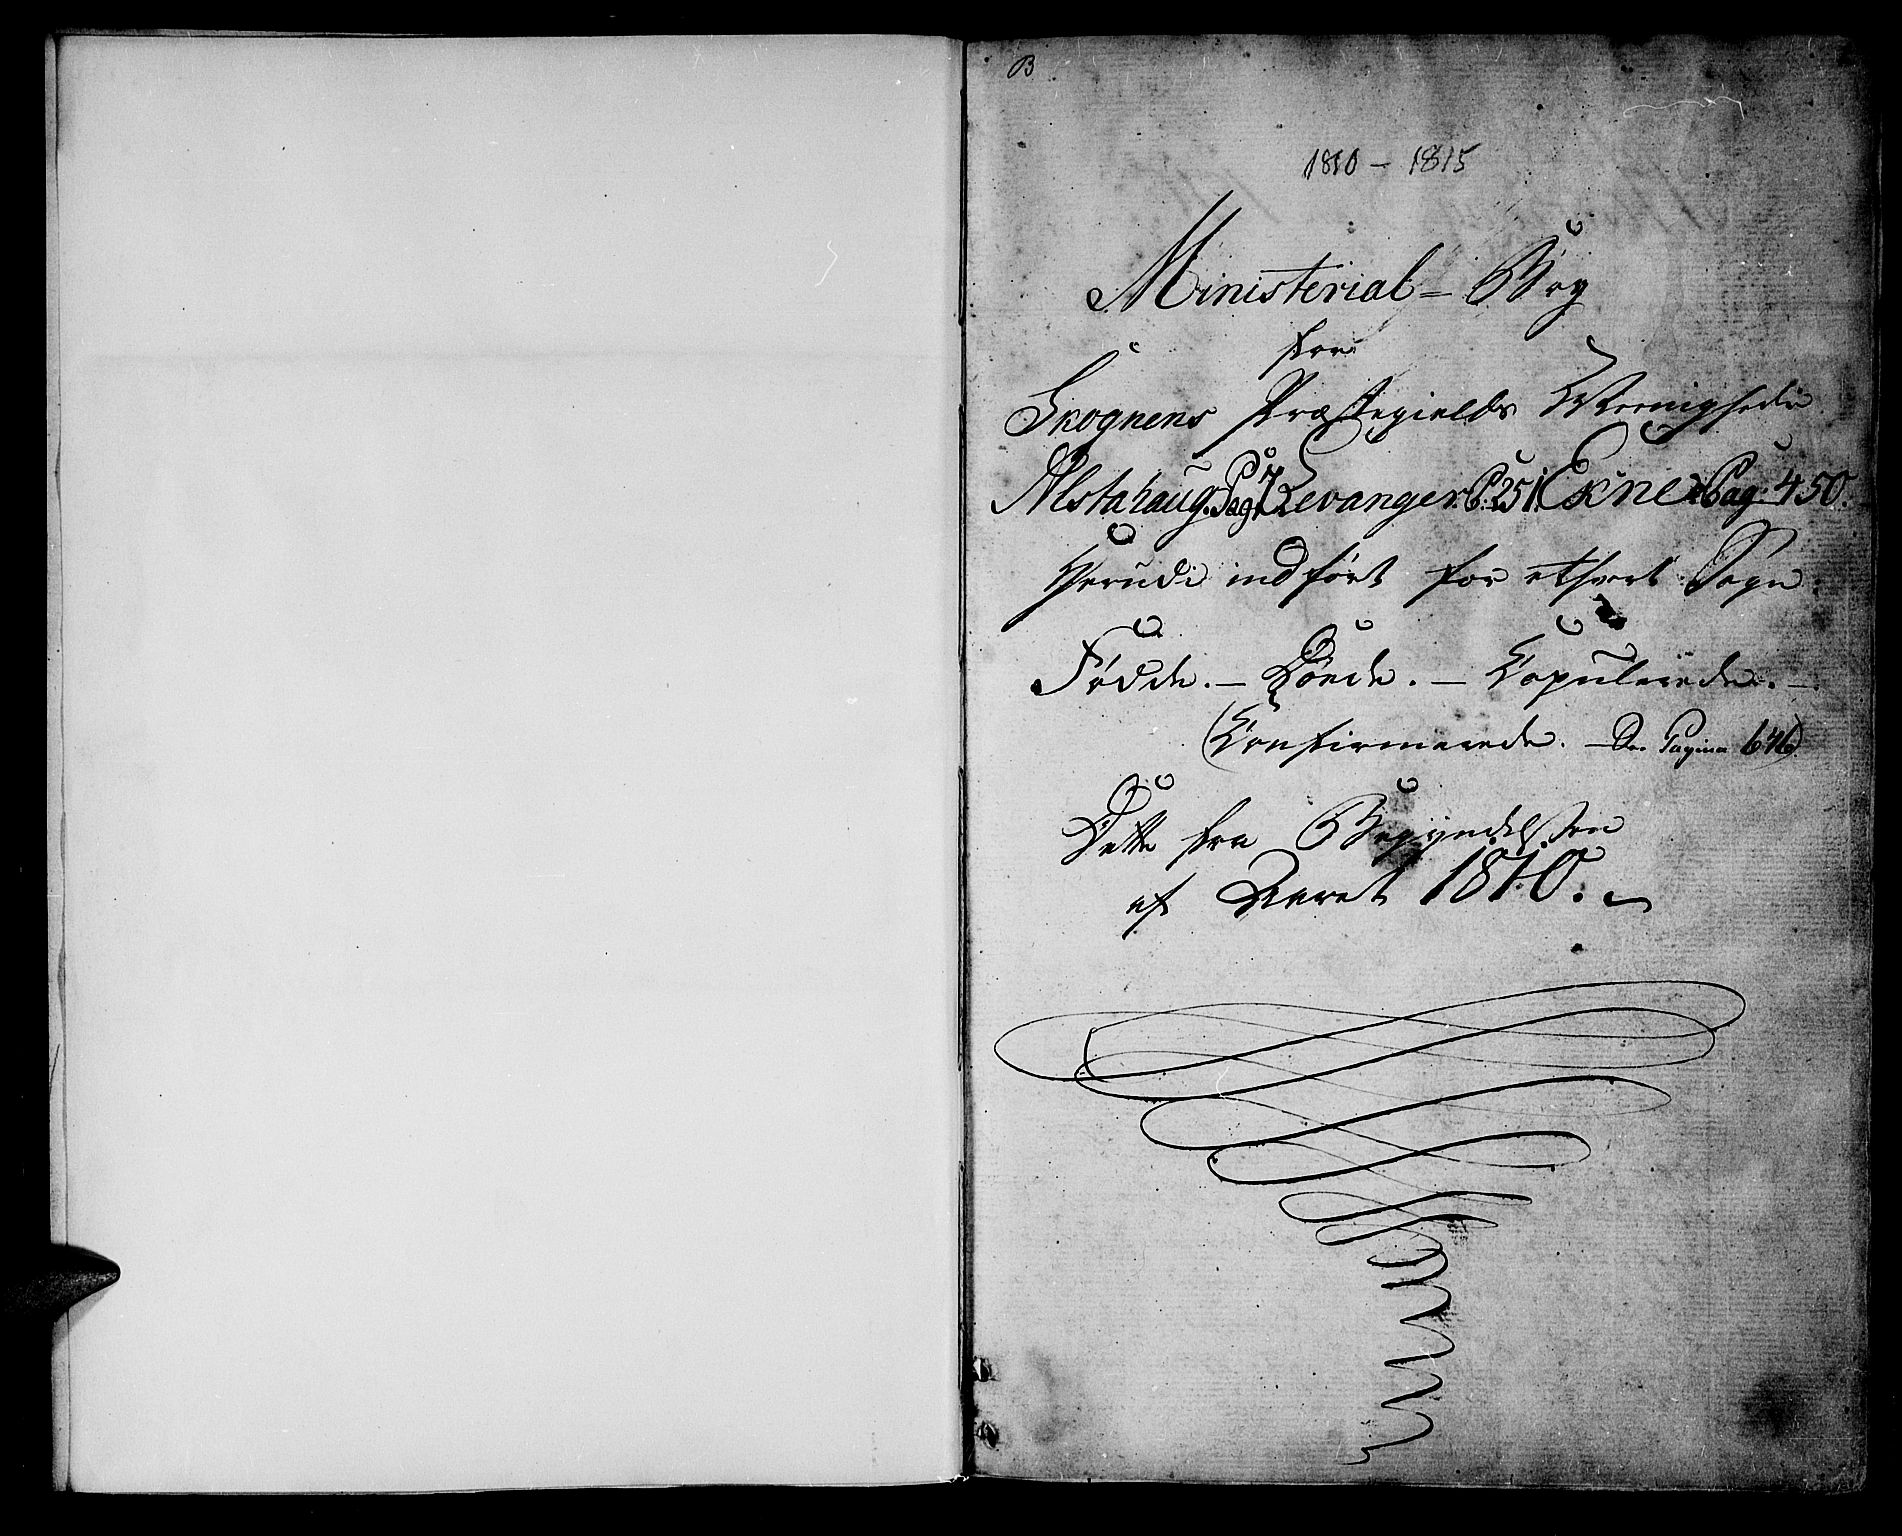 B
1810 - 1815
Ministerial - Bog
for
Skognens Præstegields Meenigheder
Alstahaug. Pag. 1. Levanger. P. 251. Ekne. Pag. 450.
Herudi indført for ethvert Sogn
Fødde. - Døede. - Copulerede. -
(Confirmerede. - See Pagina 646)
Dette fra Begyndelsen
af Aaret 1810.